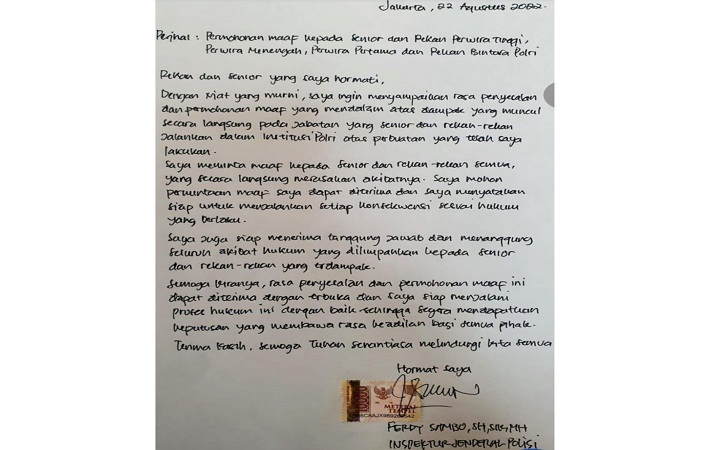 Jakarta, 22 Agustus 2022.
Perihal : Permohonan maaf kepada senior dan Rekan Perwira Tinggi,
Perwira Menengah, Perwira Pertama dan Rekan Bintara Polri
Rekan dan senior yang saya hormati,
Dengan niat yang murni, saya ingin menyampaikan rasa penyesalan
dan permohonan maaf yang mendalam atas dampak yang muncul
secara langsung pada jabatan yang senior dan rekan-rekan
jalankan dalam institusi Polri atas perbuatan yang telah saya
lakukan.
Saya meminta maaf kepada senior dan rekan-rekan semua,
yang secara langsung merasakan akibatnya. Saya mohon
permintaan maaf saya dapat diterima dan saya menyatakan
siap untuk menjalankan setiap konsekwensi sesuai hukum
yang berlaku.
Saya juga siap menerima tanggung jawab dan menanggung
seluruh akibat hukum yang dilimpahkan kepada senior
dan rekan-rekan yang terdampak.
Semoga kiranya, rasa penyesalan dan permohonan maaf ini
dapat diterima dengan terbuka dan saya siap menjalani
proses hukum ini dengan baik sehingga segera mendapatkan
keputusan yang membawa rasa keadilan bagi semua pihak.
Terima kasih, semoga Tuhan senantiasa melindungi kita semua
Hormat saya
METERAI
TEMPEL
FERDY SAMBO, SH, SIK, MH
INSPEKTUR JENDERAL POLISI